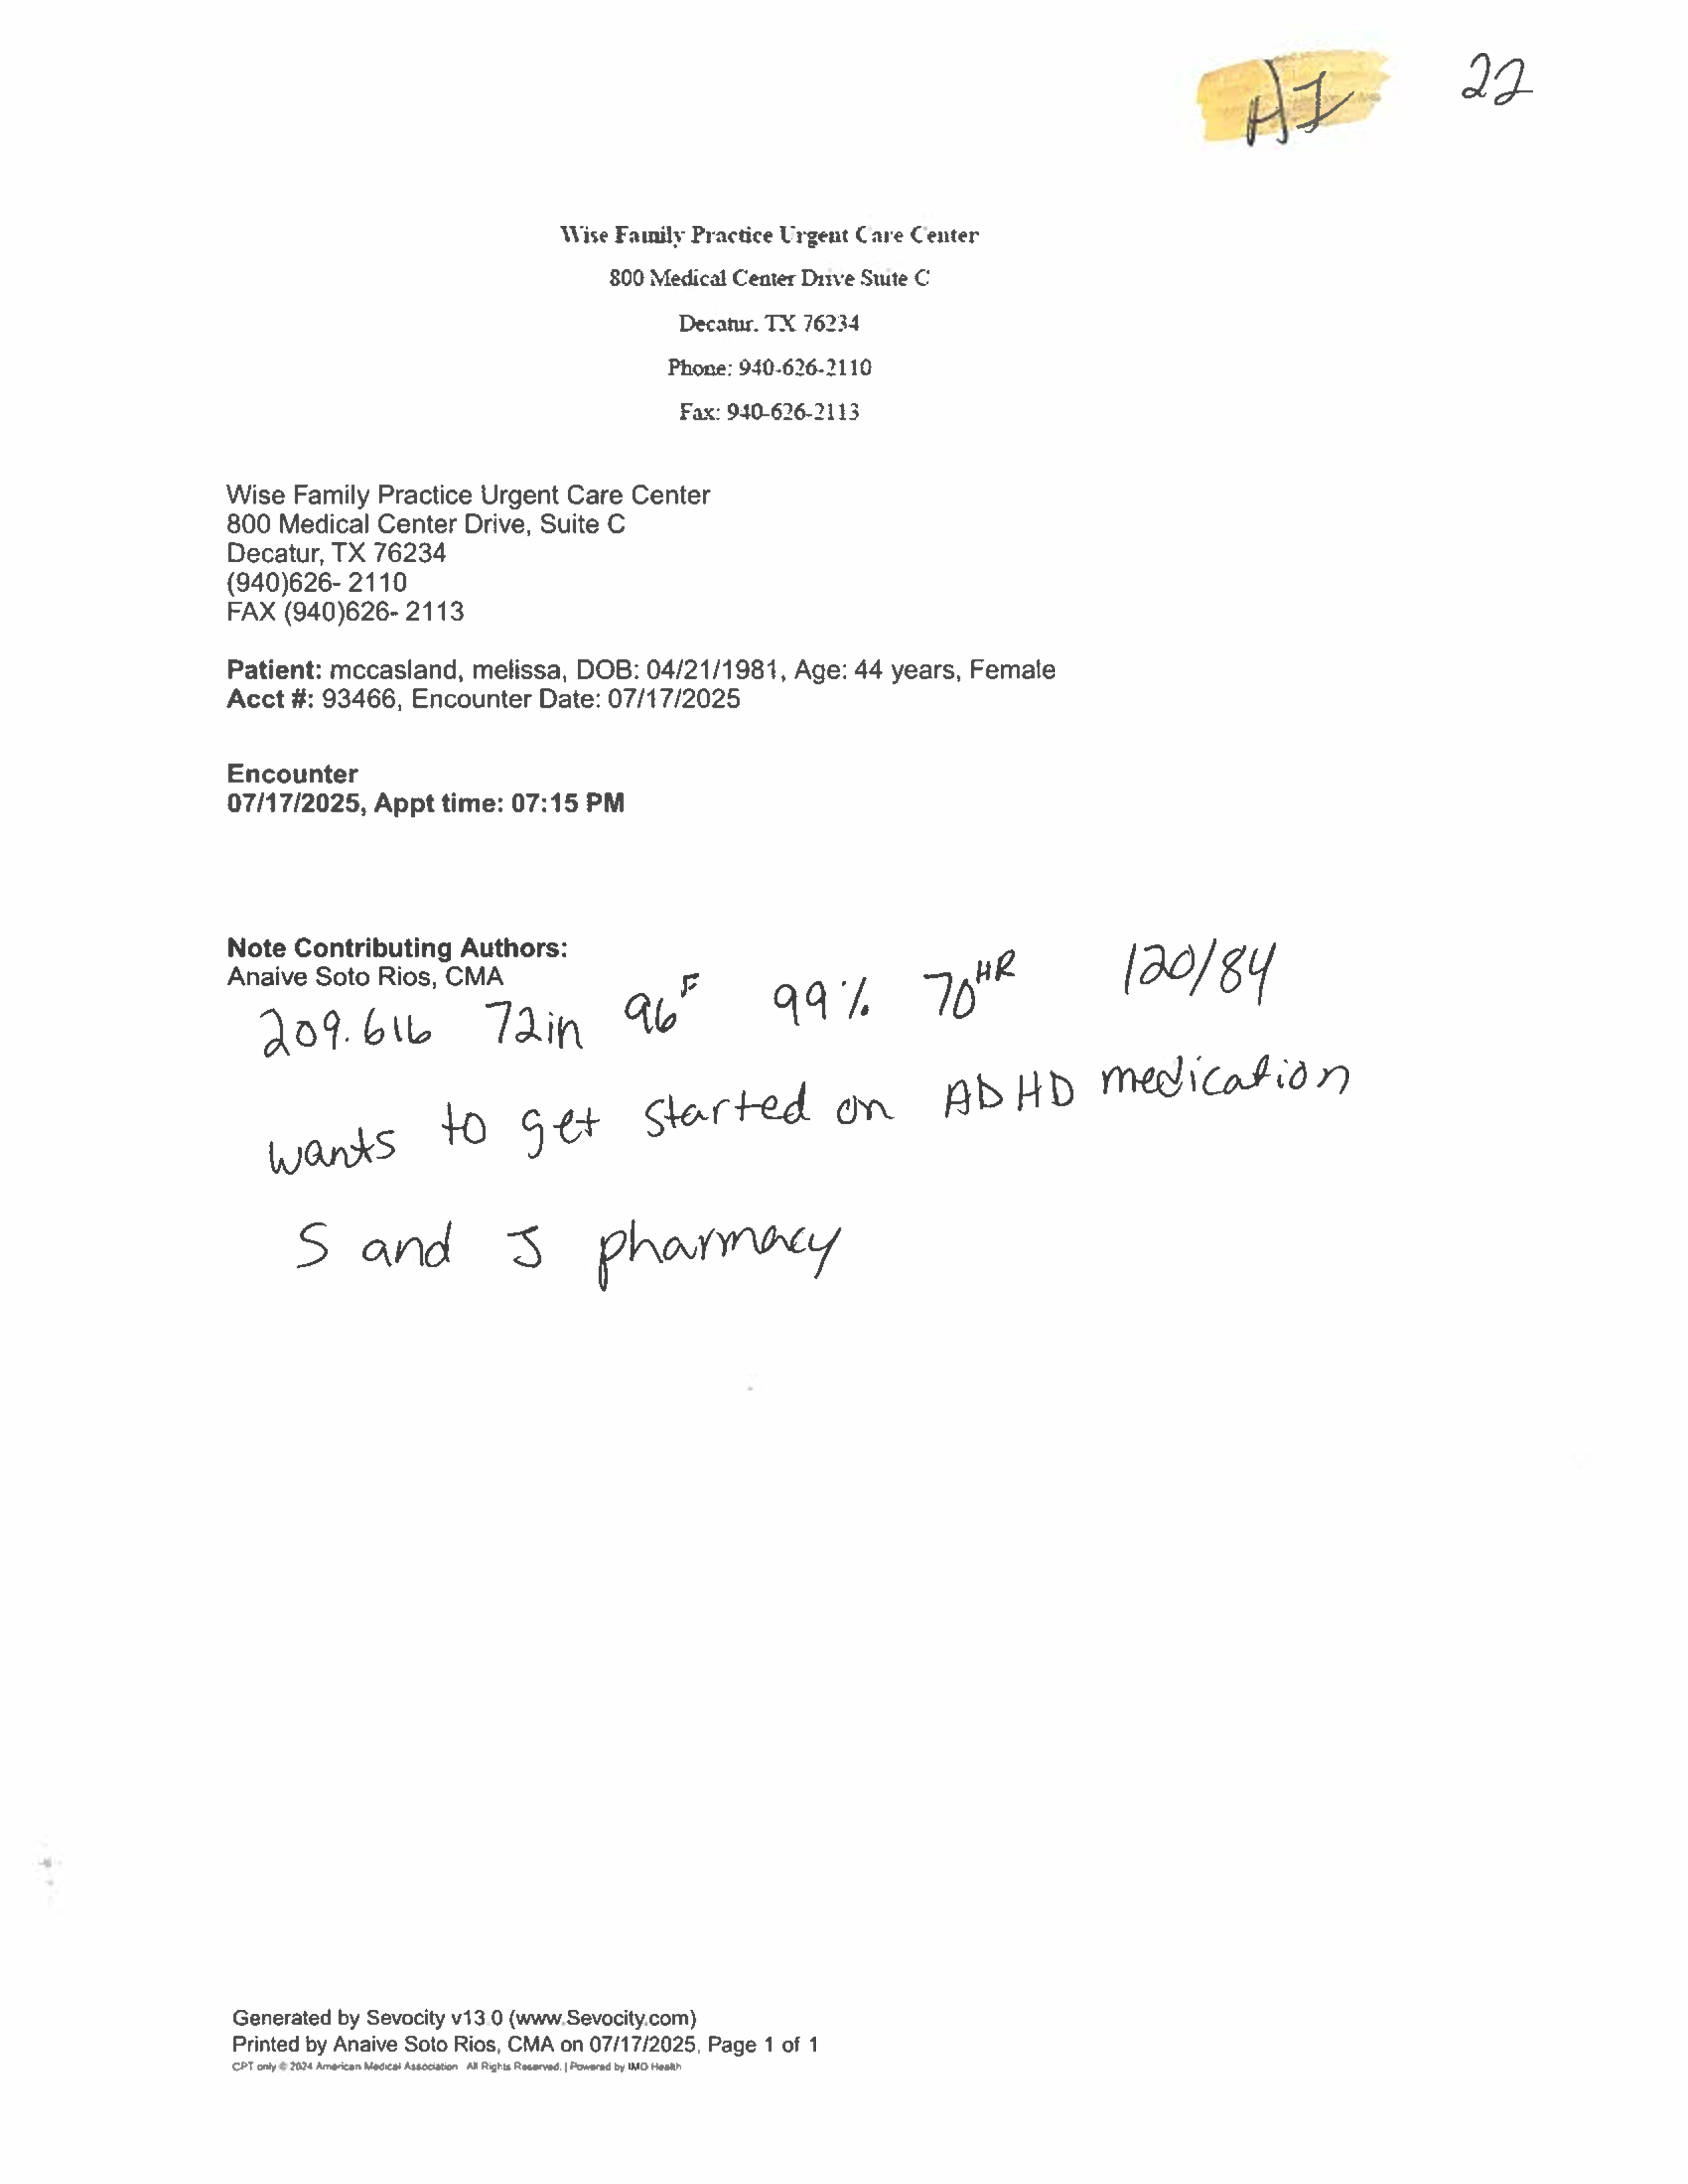 AI 22
Wise Family Practice Urgent Care Center
800 Medical Center Drive Suite C
Decatur, TX 76234
Phone: 940-626-2110
Fax: 940-626-2113
Wise Family Practice Urgent Care Center
800 Medical Center Drive, Suite C
Decatur, TX 76234
(940)626- 2110
FAX (940)626- 2113
Patient: mccasland, melissa, DOB: 04/21/1981, Age: 44 years, Female
Acct #: 93466, Encounter Date: 07/17/2025
Encounter
07/17/2025, Appt time: 07:15 PM
Note Contributing Authors:
Anaive Soto Rios, CMA
209.6lb 72in 96F 99% 70HR 120/84
wants to get started on ADHD medication
S and J pharmacy
Generated by Sevocity v13.0 (www.Sevocity.com)
Printed by Anaive Soto Rios, CMA on 07/17/2025, Page 1 of 1
CPT only © 2024 American Medical Association All Rights Reserved. | Powered by IMO Health